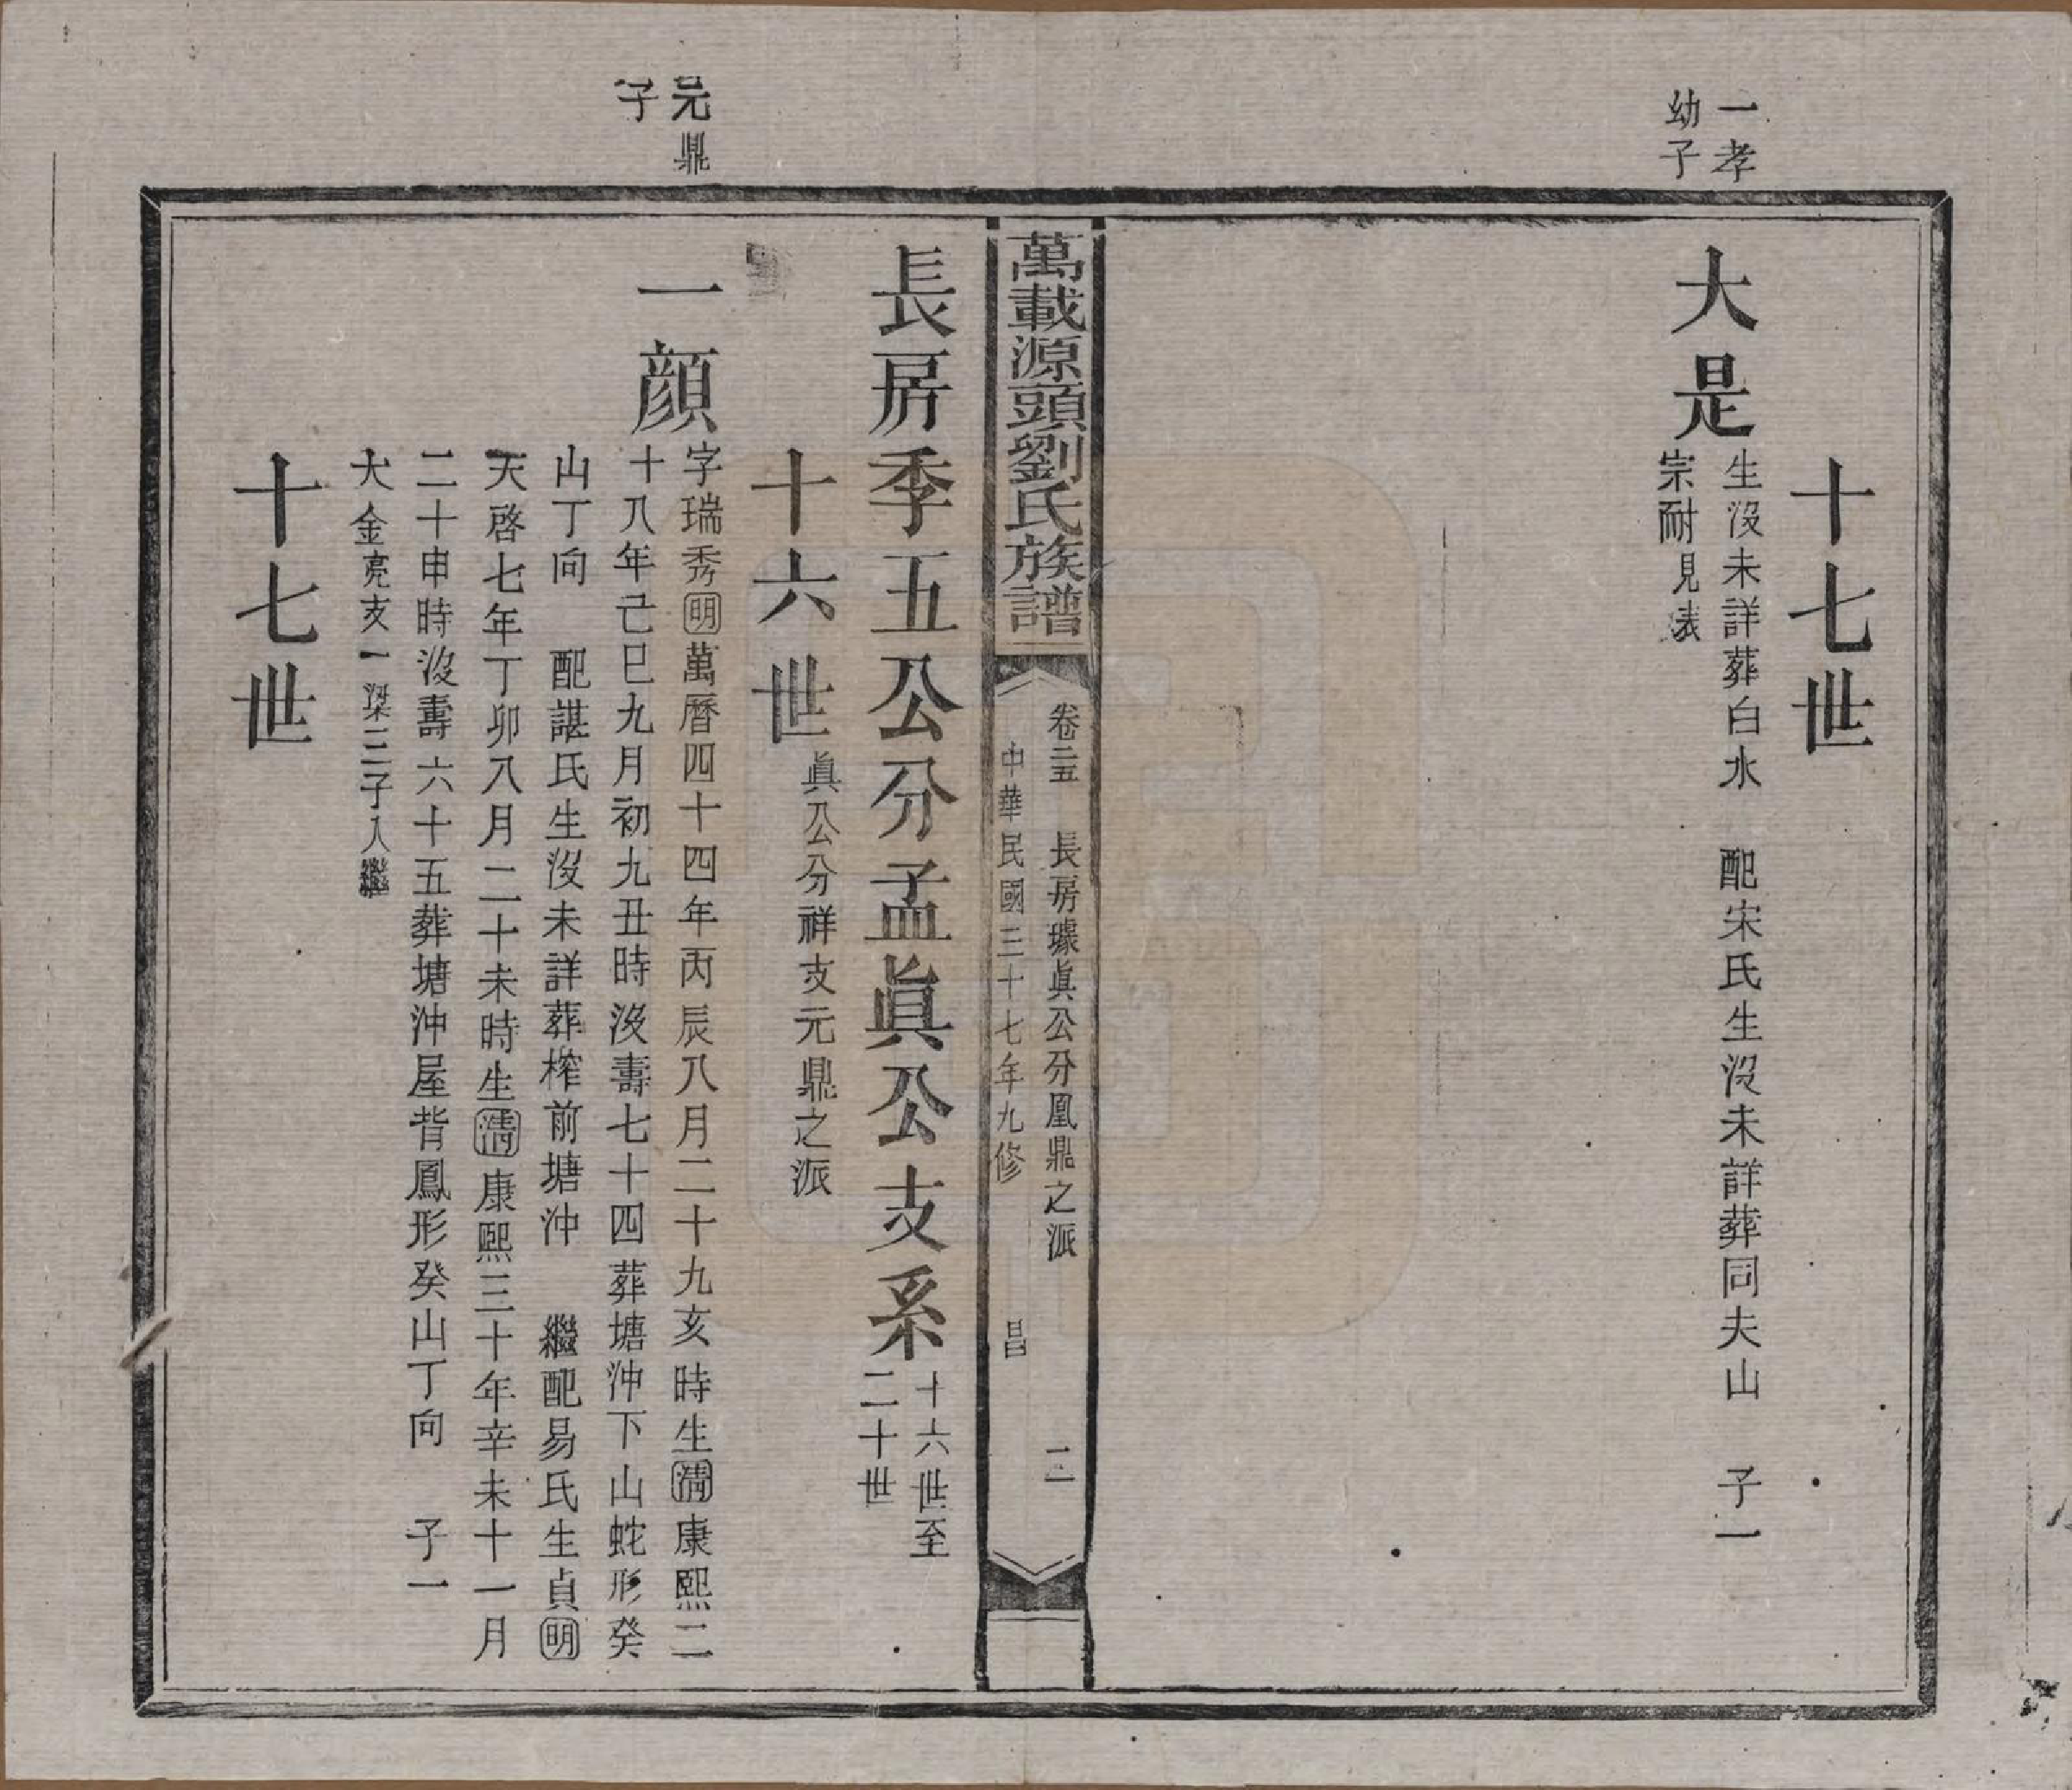 十七世
一孝
幼子
大是
生沒未詳葬白水　配宋氏生沒未詳葬同夫山　子一
宗耐見表
萬載源頭劉氏族譜
卷二五　長房璩眞公分凰鼎之派　二
中華民國三十七年九修　昌
長房季五公分孟眞公支系
十六世至
二十世
十六世
眞公分祥支元鼎之派
元鼎
子
一顔
字瑞秀明萬曆四十四年丙辰八月二十九亥時生淸康熙二
十八年己巳九月初九丑時沒壽七十四葬塘沖下山蛇形癸
山丁向　配諶氏生沒未詳葬榨前塘沖　繼配易氏生貞明
天啓七年丁卯八月二十未時生淸康熙三十年辛未十一月
二十申時沒壽六十五葬塘沖屋背鳳形癸山丁向　子一
大金亮支一榤三子入繼
十七世